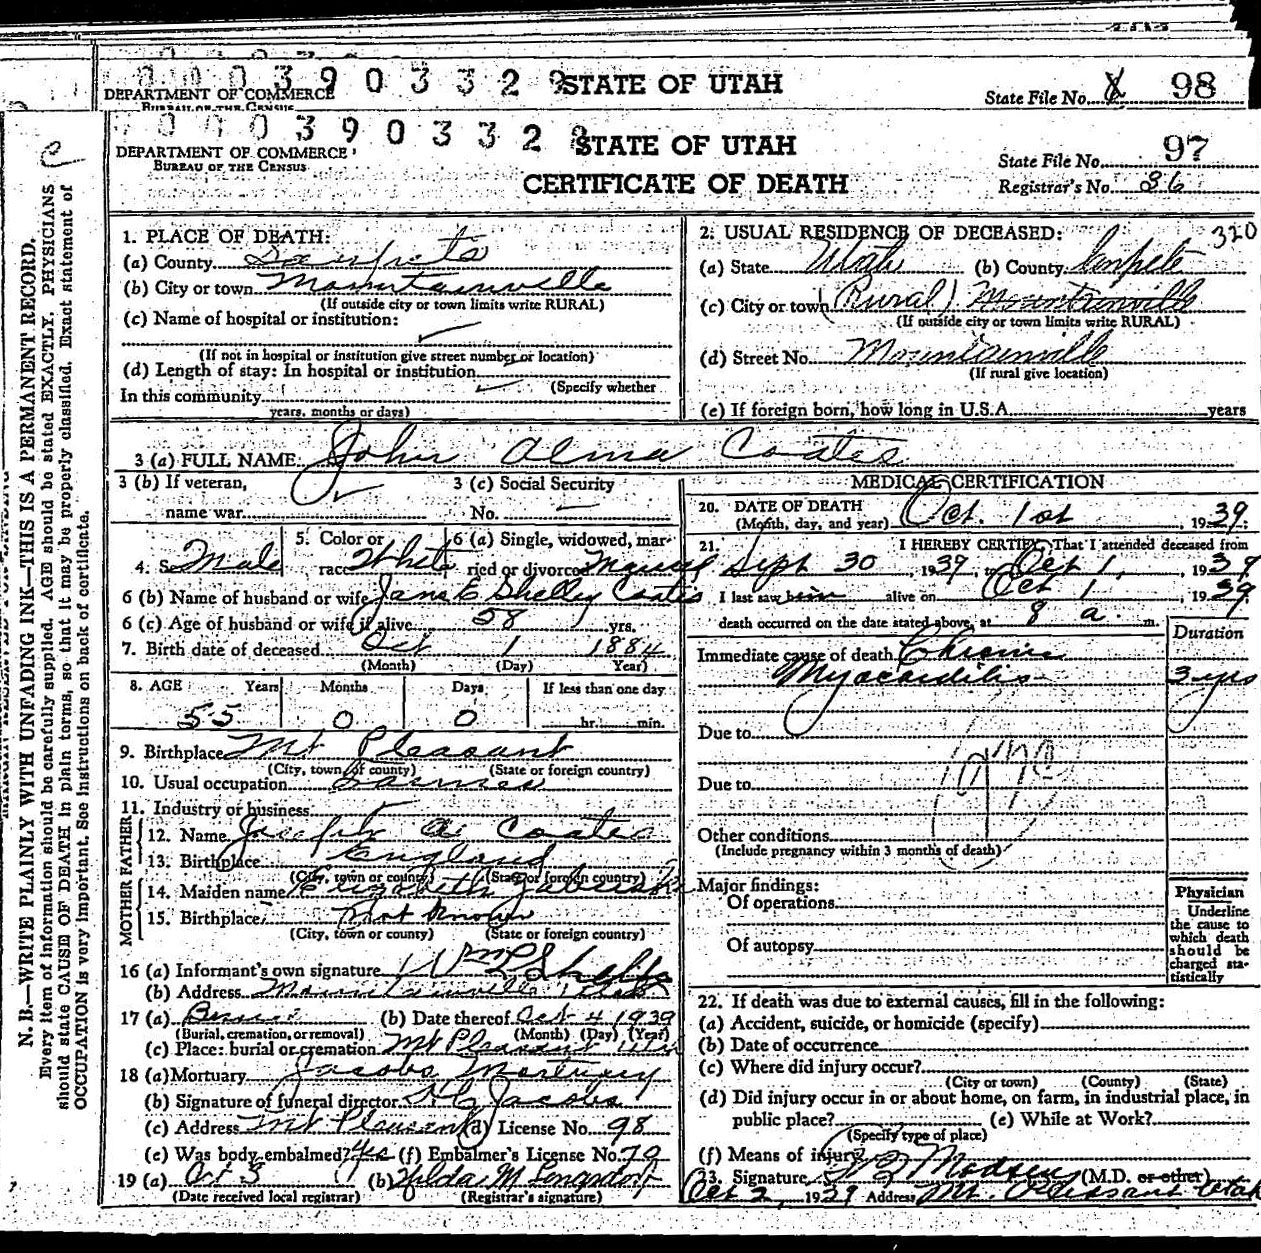 0 0 0 3 9 0 3 3 2 9 STATE OF UTAH
DEPARTMENT OF COMMERCE
BUREAU OF THE CENSUS
State File No. 98
0 0 0 3 9 0 3 3 2 9 STATE OF UTAH
DEPARTMENT OF COMMERCE
BUREAU OF THE CENSUS
CERTIFICATE OF DEATH
State File No. 97
Registrar's No. 86
N. B.—WRITE PLAINLY WITH UNFADING INK—THIS IS A PERMANENT RECORD.
Every item of information should be carefully supplied. AGE should be stated EXACTLY. PHYSICIANS
should state CAUSE OF DEATH in plain terms, so that it may be properly classified. Exact statement of
OCCUPATION is very important. See instructions on back of certificate.
1. PLACE OF DEATH:
(a) County Sanpete
(b) City or town Mountainville
(If outside city or town limits write RURAL)
(c) Name of hospital or institution:
(If not in hospital or institution give street number or location)
(d) Length of stay: In hospital or institution
(Specify whether
In this community
years, months or days)
2. USUAL RESIDENCE OF DECEASED: 320
(a) State Utah (b) County Sanpete
(c) City or town (Rural) Mountainville
(If outside city or town limits write RURAL)
(d) Street No. Mountainville
(If rural give location)
(e) If foreign born, how long in U.S.A. years
3 (a) FULL NAME: John Alma Coates
3 (b) If veteran, 3 (c) Social Security
name war No.
4. Sex Male 5. Color or race White 6 (a) Single, widowed, married or divorced Married
6 (b) Name of husband or wife Jane E Shelley Coates
6 (c) Age of husband or wife if alive 58 yrs.
7. Birth date of deceased Oct 1 1884
(Month) (Day) Year)
8. AGE Years Months Days If less than one day
55 0 0 hr. min.
9. Birthplace Mt Pleasant
(City, town or county) (State or foreign country)
10. Usual occupation Farmer
11. Industry or business
FATHER
12. Name Joseph A Coates
13. Birthplace England
(City, town or county) (State or foreign country)
MOTHER
14. Maiden name Elizabeth
15. Birthplace Not Known
(City, town or county) (State or foreign country)
16 (a) Informant's own signature Wm L Shelley
(b) Address Mountainville Utah
17 (a) Burial (b) Date thereof Oct 4 1939
(Burial, cremation, or removal) (Month) (Day) (Year)
(c) Place: burial or cremation Mt Pleasant Utah
18 (a) Mortuary Jacobs Mortuary
(b) Signature of funeral director Jacobs
(c) Address Mt Pleasant (d) License No. 98
(e) Was body embalmed? Yes (f) Embalmer's License No. 79
19 (a) Oct 3 (b) Hilda M Longsdorf
(Date received local registrar) (Registrar's signature)
MEDICAL CERTIFICATION
20. DATE OF DEATH Oct. 1st, 1939.
(Month, day, and year)
21. I HEREBY CERTIFY, That I attended deceased from
Sept 30, 1939, to Oct 1, 1939
I last saw him alive on Oct 1, 1939
death occurred on the date stated above, at 8 a. m.
Duration
Immediate cause of death Chronic
Myocarditis 3 yrs
Due to
Due to
Other conditions
(Include pregnancy within 3 months of death)
Major findings:
Of operations
Of autopsy
Physician
Underline
the cause to
which death
should be
charged sta-
tistically
22. If death was due to external causes, fill in the following:
(a) Accident, suicide, or homicide (specify)
(b) Date of occurrence
(c) Where did injury occur?
(City or town) (County) (State)
(d) Did injury occur in or about home, on farm, in industrial place, in
public place? (e) While at Work?
(Specify type of place)
(f) Means of injury
23. Signature Madsen (M.D. or other)
Oct 2, 1939 Address Mt. Pleasant Utah